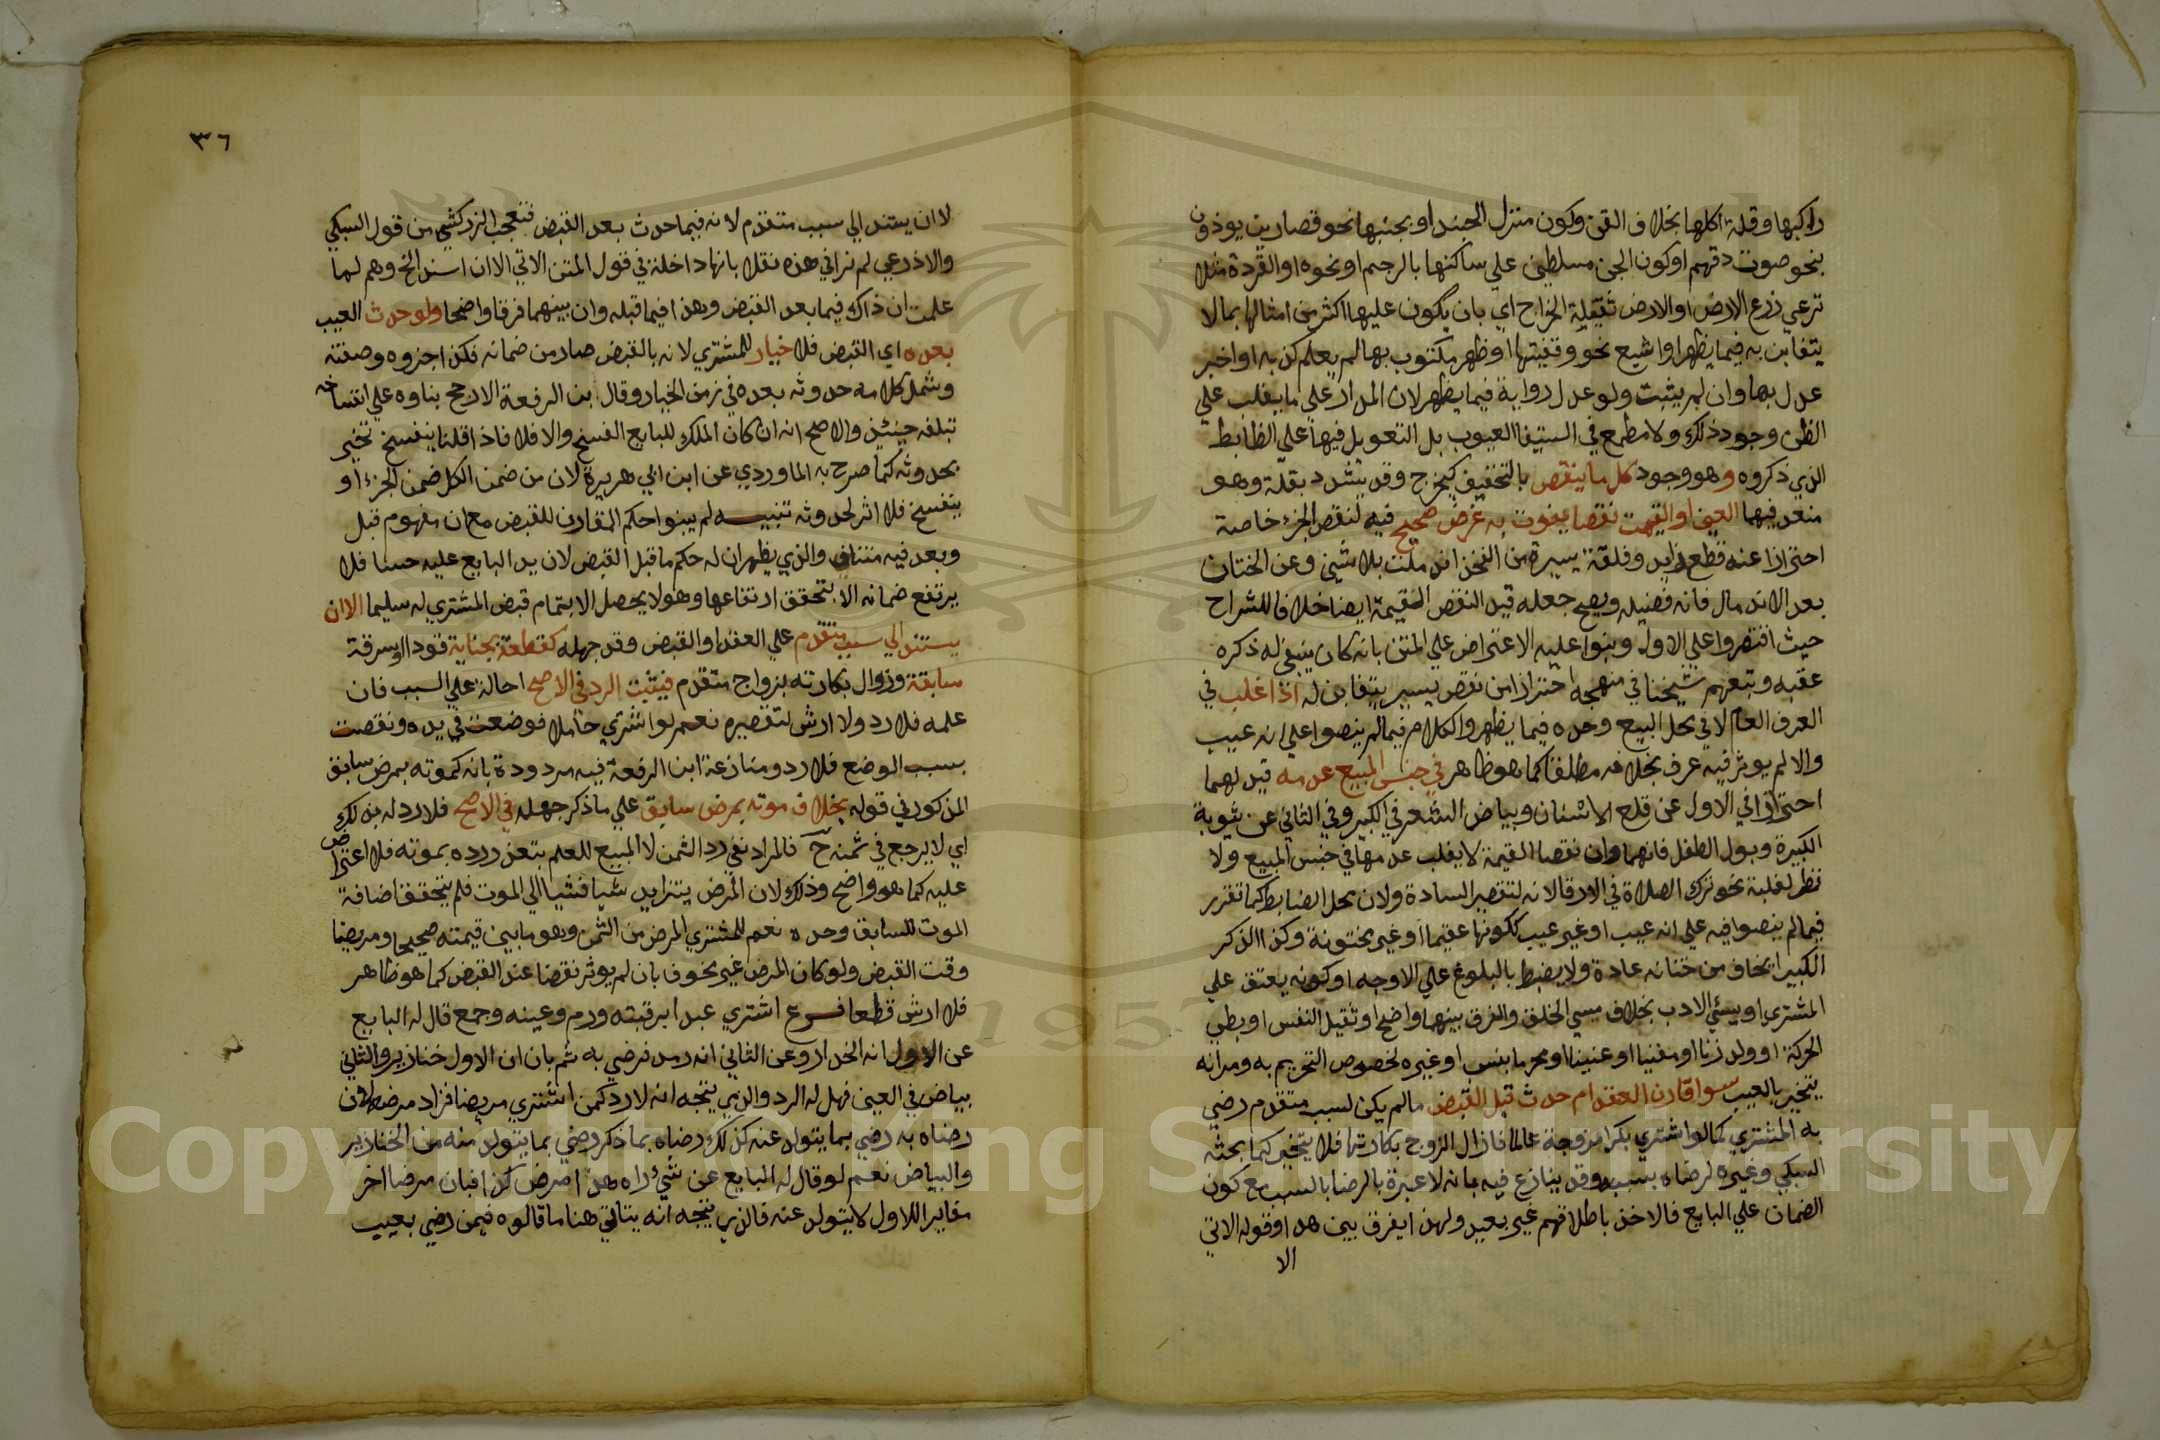 راكبها وقلة اكلها بخلاف القن وكون منزل الجند او بجنبها نحو قصارين يوذون
بنحو صوت دقهم او كون الجن مسلطين علي ساكنها بالرجم او نحوه او القردة مثلا
ترعي زرع الارض او الارض ثقيلة الخراج اي بان يكون عليها اكثر من امثالها بما لا
يتغابن به فيما يظهر او اشيع نحو وقفيتها او ظهر مكتوب بها لم يعلم كذبه او اخبر
عدل بها وان لم يثبت ولو عدل رواية فيما يظهر لان المدار علي ما يغلب علي
الظن وجود ذلك ولا مطمع في استيفا العيوب بل التعويل فيها علي الظابط
الذي ذكروه وهو وجود كل ما ينقص بالتخفيف كيخرج وقد يشدد بقلة وهو
متعد فيهما العين او القيمت نقصا يفوت به غرض صحيح قيد لنقص الجزء خاصة
احترازا عنه قطع زايد وفلقة يسيرة من الفخذ اندملت بلا شين وعن الختان
بعد الاندمال فانه فضيله ويصح جعله قيد النقص القيمة ايضا خلافا للشراح
حيث اقتصروا علي الاول وبنوا عليه الاعتراض علي المتن بانه كان ينبغي له ذكره
عقبه وتبعهم شيخنا في منهجه احترازا من نقص يسير يتغابن له اذا غلب في
العرف العام لا في محل البيع وحده فيما يظهر والكلام فيما لم ينصوا علي انه عيب
والا لم يوثر فيه عرف بخلافه مطلقا كما هو ظاهر في جنس المبيع عدمه قيد لهما
احترازا في الاول عن قلع الاسنان وبياض الشعر في الكبير وفي الثاني عن ثيوبة
الكبيرة وبول الطفل فانهما وان نقصا القيمة لا يغلب عدمها في جنس المبيع ولا
نظر لغلبة نحو ترك الصلاة في الارقا لانه لتقصير السادة ولان محل الضابط كما تقرر
فيما لم ينصوا فيه علي انه عيب او غير عيب ككونها عقيما او غير مختونة وكذا الذكر
الكبير ايخاف من ختانه عادة ولا يضبط بالبلوغ علي الاوجه او كونه يعتق علي
المشتري او سيئ الادب بخلاف سيي الخلق والفرق بينهما واضح او ثقيل النفس او بطي
الحركة او ولد زنا او مغنيا او عنينا او محرما بنسب او غيره لخصوص التحريم به ومر انه
يتخير بالعيب سوا قارن العقد ام حدث قبل القبض ما لم يكن لسبب متقدم رضي
به المشتري كما لو اشتري بكرا مزوجة عالما فازال الزوج بكارتها فلا يتخير كما بحثه
السبكي وغيره لرضاه بسببه وقد ينازع فيه بانه لا عبرة بالرضا بالسبب مع كون
الضمان علي البايع فالاخذ باطلاقهم غير بعيد ولهذا يفرق بين هذا وقوله الاتي
الا
٣٦
لا ان يستند الي سبب متقدم لانه فيما حدث بعد القبض فتعجب الزركشي من قول السبكي
والاذرعي لم نرا في هذه نقلا بانها داخلة في قول المتن الاتي الا ان استند الخ وهم لما
علمت ان ذاك فيما بعد القبض وهذا فيما قبله وان بينهما فرقا واضحا ولو حدث العيب
بعده اي القبض فلا خيار للمشتري لانه بالقبض صار من ضمانه فكذا جزوه وصفته
وشمل كلامه حدوثه بعده في زمن الخيار وقال ابن الرفعة الارجح بناوه علي انفساخه
تبلفه حينئذ والاصح انه ان كان الملك للبايع الفسخ والا فلا فاذا قلنا ينفسخ تخير
بحدوثه كما صرح به الماوردي عن ابن ابي هريرة لان من ضمن الكل ضمن الجزء او
ينفسخ فلا اثر لحدوثه تنبيه لم يبنوا حكم المقارن للقبض مع ان مفهوم قبل
وبعد فيه متناف والذي يظهر ان له حكم ما قبل القبض لان يد البايع عليه حسا فلا
يرتفع ضمانه الا بتحقق ارتفاعها وهو لا يحصل الا بتمام قبض المشتري له سليما الا ان
يستند الي سبب متقدم علي العقد او القبض وقد جهله كقطعة بجناية قودا او سرقة
سابقة وزوال بكارته بزواج متقدم فيثبت الرد في الاصح احالة علي السبب فان
علمه فلا رد ولا ارش لتقصيره نعم لو اشتري حاملا فوضعت في يده ونقصت
بسبب الوضع فلا رد ومنازعة ابن الرفعة فيه مردودة بانه كموته بمرض سابق
المذكور في قوله بخلاف موته بمرض سابق علي ما ذكر جهله في الاصح فلا رد له بذلك
اي لا يرجع في ثمنه ح فالمراد نفي رد الثمن لا المبيع للعلم بتعذر رده بموته فلا اعتراض
عليه كما هو واضح وذلك لان المرض يتزايد شيا فشيا الي الموت فلم يتحقق اضافة
الموت للسابق وحده نعم للمشتري المرض من الثمن وهو ما بين قيمته صحيحا ومريضا
وقت القبض ولو كان المرض غير مخوف بان لم يوثر نقصا عند القبض كما هو ظاهر
فلا ارش قطعا فرع اشتري عبدا برقبته ورم وعينه وجع قال له البايع
عن الاول انه انحدار وعن الثاني انه رمد فرضي به ثم بان ان الاول خنازير والثاني
بياض في العين فهل له الرد والذي يتجه انه لا رد كمن اشتري مريضا فزاد مرضه لان
رضاه به رضي بما يتولد عنه كذلك رضاه بما ذكر رضي بما يتولد منه من الخنازير
والبياض نعم لو قال له البايع عن شيء راه هذا مرض كذا فبان مرضا اخر
مغايرا للاول لا يتولد عنه فالذي يتجه انه ياتي هنا ما قالوه فيمن رضي بعيب
Copyright © King Saud University
1957